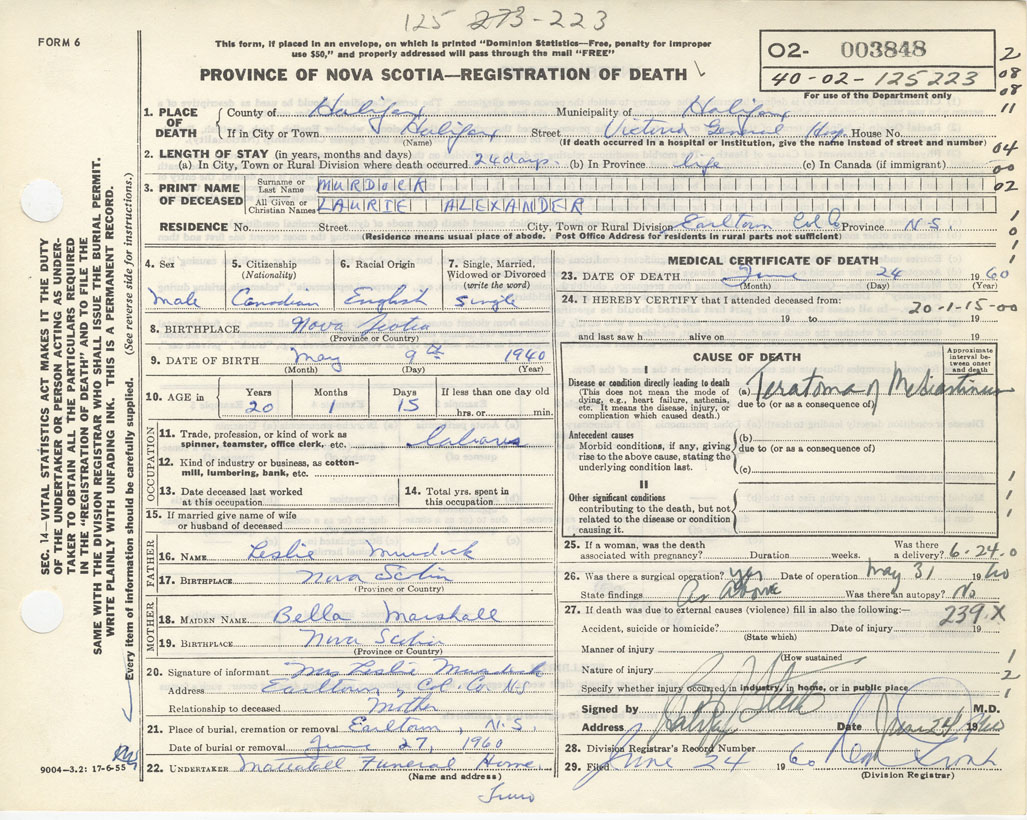 125 273-223
FORM 6
This form, if placed in an envelope, on which is printed "Dominion Statistics—Free, penalty for improper
use $50," and properly addressed will pass through the mail "FREE"
PROVINCE OF NOVA SCOTIA—REGISTRATION OF DEATH
02- 003848
40-02-125223
For use of the Department only
2
08
08
11
04
00
02
1. PLACE OF DEATH
County of Halifax Municipality of Halifax
If in City or Town Halifax Street Victoria General Hosp. House No.
(Name) (If death occurred in a hospital or institution, give the name instead of street and number)
2. LENGTH OF STAY (in years, months and days)
(a) In City, Town or Rural Division where death occurred 24 days. (b) In Province life (c) In Canada (if immigrant)
3. PRINT NAME OF DECEASED
Surname or Last Name MURDOCK
All Given or Christian Names LAURIE ALEXANDER
RESIDENCE No. Street City, Town or Rural Division Earltown Col Co Province N.S.
(Residence means usual place of abode. Post Office Address for residents in rural parts not sufficient)
4. Sex Male
5. Citizenship (Nationality) Canadian
6. Racial Origin English
7. Single, Married, Widowed or Divorced (write the word) Single
8. BIRTHPLACE Nova Scotia
(Province or Country)
9. DATE OF BIRTH May 9th 1940
(Month) (Day) (Year)
10. AGE in Years 20 Months 1 Days 15 If less than one day old hrs. or min.
OCCUPATION
11. Trade, profession or kind of work as spinner, teamster, office clerk, etc.
12. Kind of industry or business, as cotton-mill, lumbering, bank, etc.
13. Date deceased last worked at this occupation
14. Total yrs. spent in this occupation
15. If married give name of wife or husband of deceased
FATHER
16. NAME Leslie Murdock
17. BIRTHPLACE Nova Scotia
(Province or Country)
MOTHER
18. MAIDEN NAME Bella Marshall
19. BIRTHPLACE Nova Scotia
(Province or Country)
20. Signature of informant Mrs Leslie Murdock
Address Earltown, Col. Co. N.S
Relationship to deceased Mother
21. Place of burial, cremation or removal Earltown, N.S
Date of burial or removal June 27, 1960
22. UNDERTAKER Funeral Home
(Name and address)
Truro
MEDICAL CERTIFICATE OF DEATH
23. DATE OF DEATH June 24 1960
(Month) (Day) (Year)
24. I HEREBY CERTIFY that I attended deceased from:
20-1-15-00
19 to 19
and last saw h alive on 19
CAUSE OF DEATH
Approximate interval between onset and death
I
Disease or condition directly leading to death
(This does not mean the mode of dying, e.g., heart failure, asthenia, etc. It means the disease, injury, or complication which caused death.)
(a) Teratoma of Mediastinum
due to (or as a consequence of)
Antecedent causes
Morbid conditions, if any, giving rise to the above cause, stating the underlying condition last.
(b)
due to (or as a consequence of)
(c)
II
Other significant conditions contributing to the death, but not related to the disease or condition causing it.
25. If a woman, was the death associated with pregnancy? Duration weeks. Was there a delivery? 6-24.0
26. Was there a surgical operation? yes Date of operation May 31 1960
State findings As Above Was there an autopsy? No
27. If death was due to external causes (violence) fill in also the following:— 239.X
Accident, suicide or homicide? Date of injury 19
(State which)
Manner of injury
(How sustained
Nature of injury
Specify whether injury occurred in industry, in home, or in public place
Signed by M.D.
Address Halifax Date June 24 1960
28. Division Registrar's Record Number
29. Filed June 24 1960
(Division Registrar)
SEC. 14—VITAL STATISTICS ACT MAKES IT THE DUTY
OF THE UNDERTAKER OR PERSON ACTING AS UNDER-
TAKER TO OBTAIN ALL THE PARTICULARS REQUIRED
IN THE "REGISTRATION OF DEATH" AND TO FILE THE
SAME WITH THE DIVISION REGISTRAR WHO SHALL ISSUE THE BURIAL PERMIT.
WRITE PLAINLY WITH UNFADING INK. THIS IS A PERMANENT RECORD.
Every item of information should be carefully supplied. (See reverse side for instructions.)
9004-3.2: 17-6-55